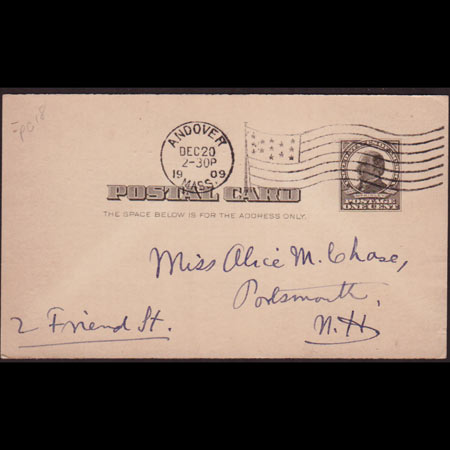 ANDOVER
DEC 20
2-30P
19 09
MASS.
POSTAL CARD
THE SPACE BELOW IS FOR THE ADDRESS ONLY.
POSTAGE
ONE CENT
Miss Alice M. Chase,
Portsmouth,
2 Friend St.
N.H.